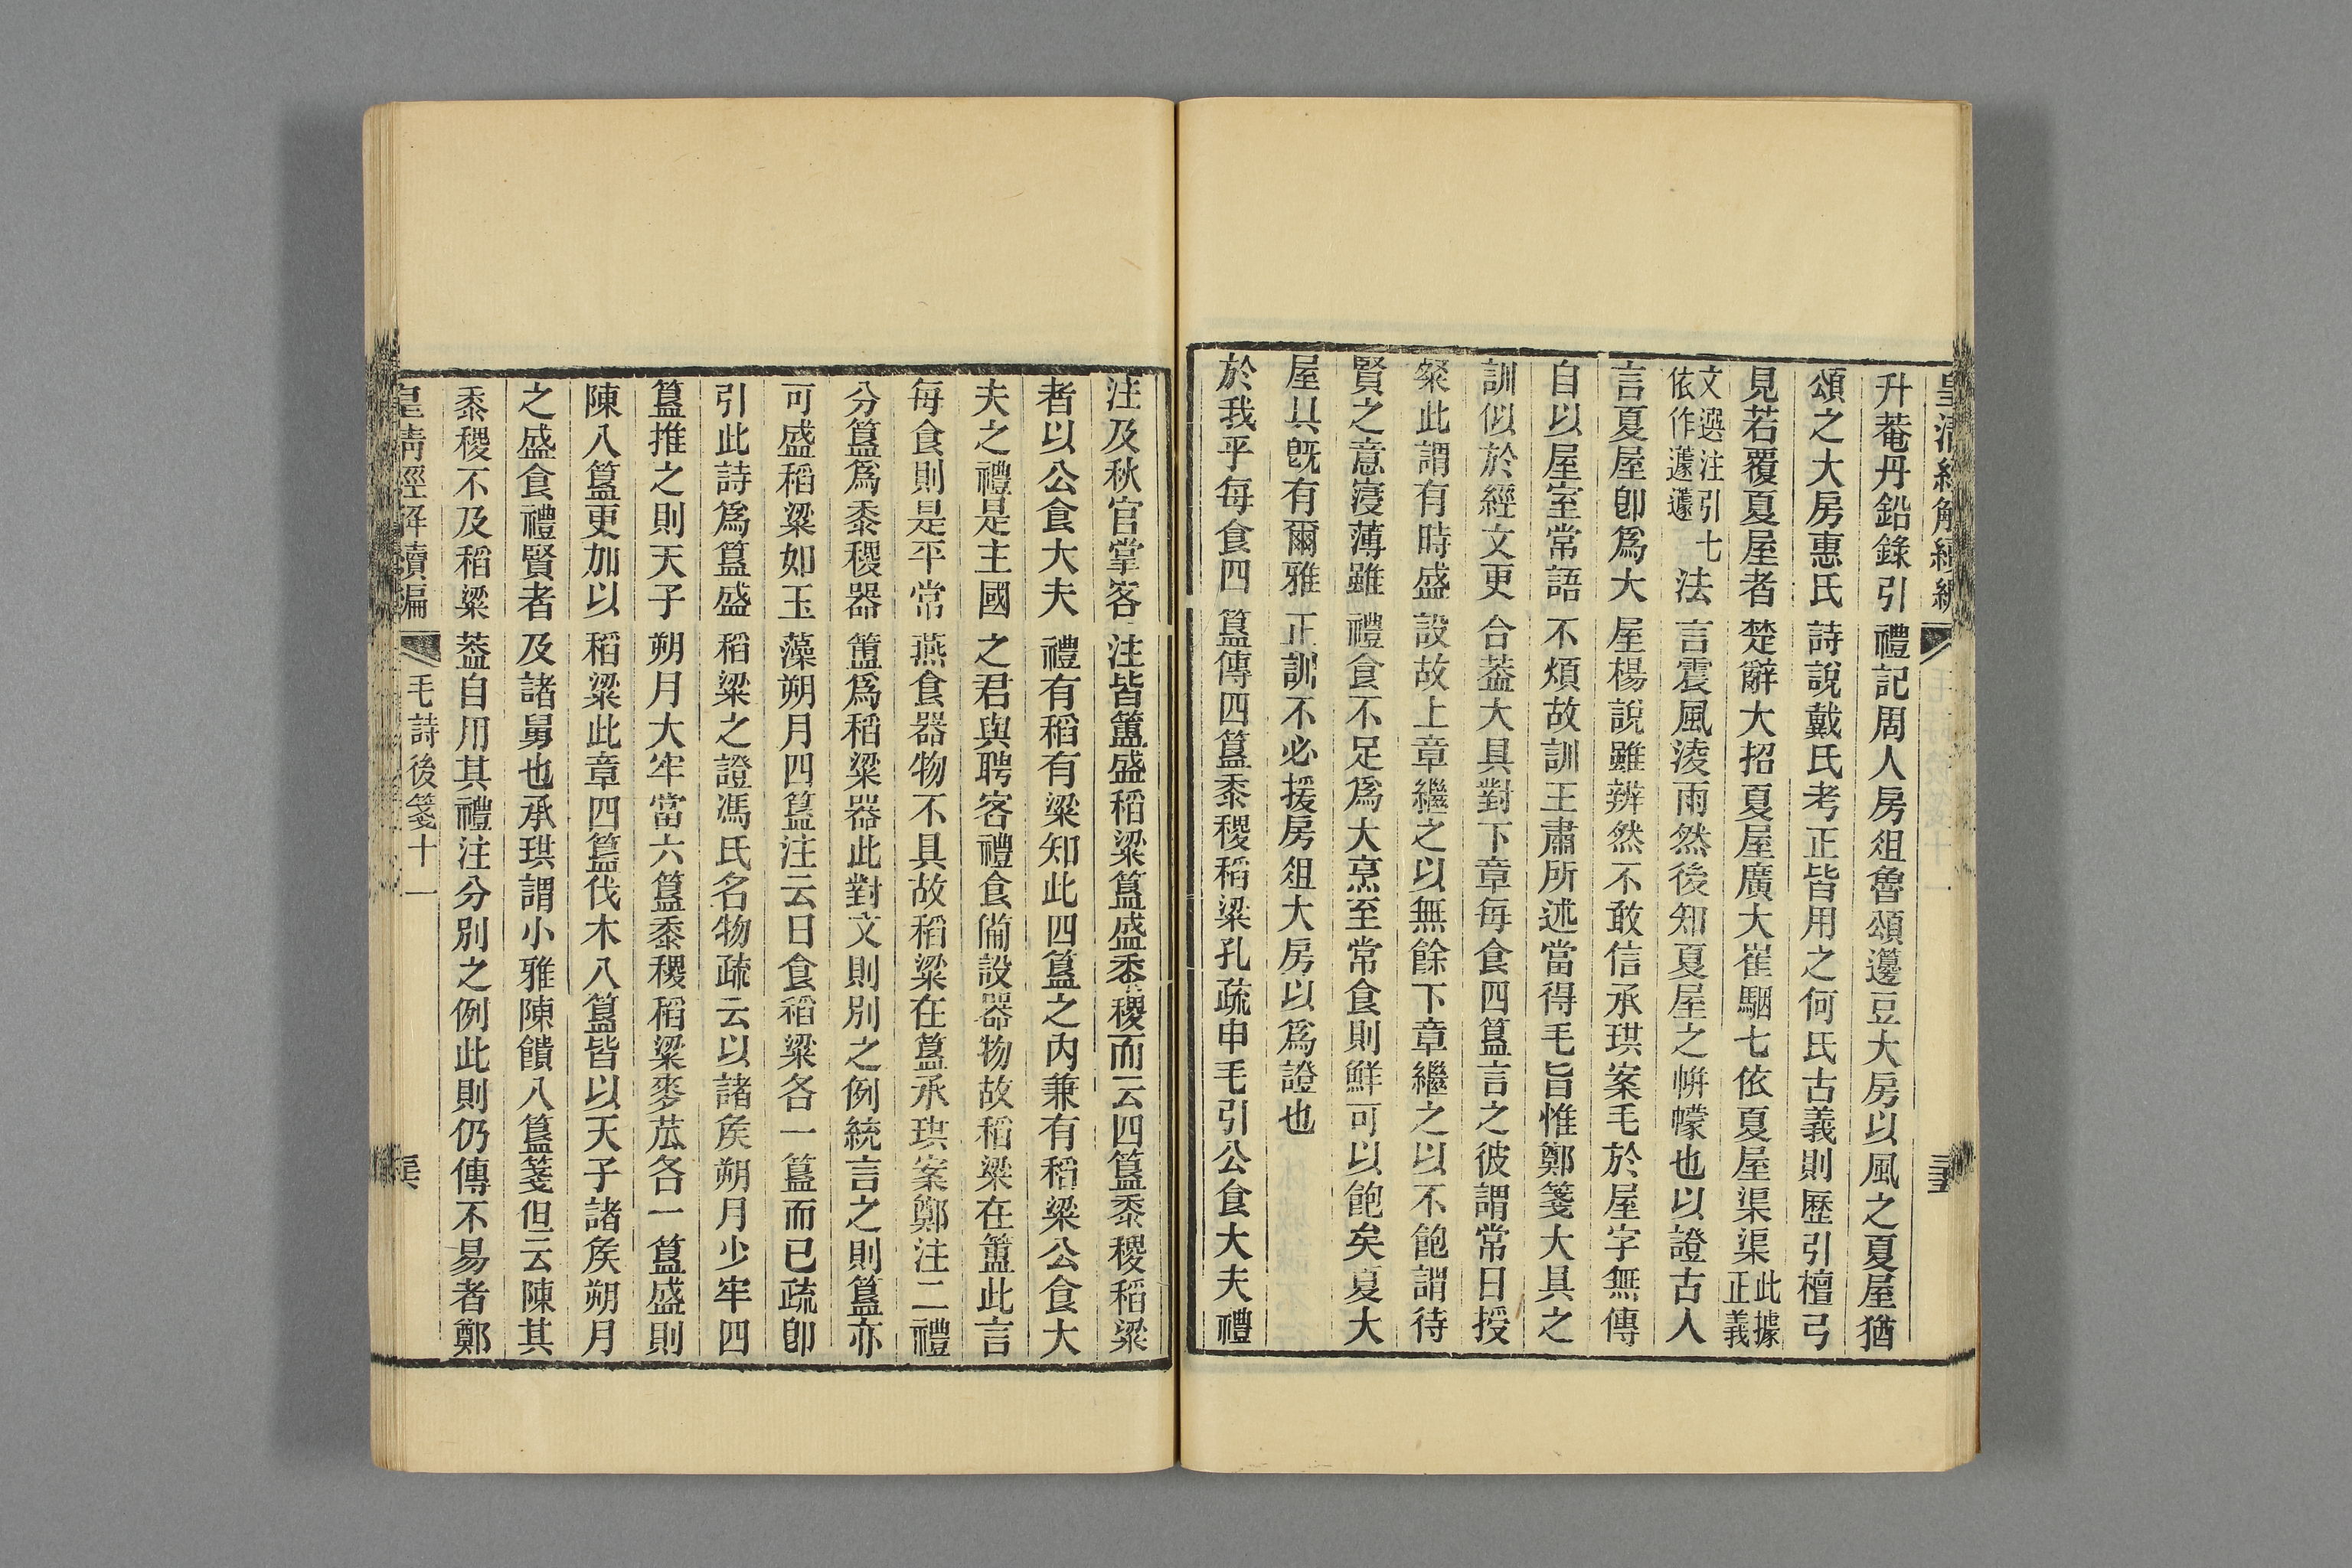 升菴丹鉛錄引禮記周人房俎魯頌籩豆大房以風之夏屋猶
頌之大房惠氏詩說戴氏考正皆用之何氏古義則歷引檀弓
見若覆夏屋者楚辭大招夏屋廣大崔駰七依夏屋渠渠此據正義
文選注引七依作蘧蘧法言震風淩雨然後知夏屋之帡幪也以證古人
言夏屋卽爲大屋楊說雖辨然不敢信承珙案毛於屋字無傳
自以屋室常語不煩故訓王肅所述當得毛旨惟鄭箋大具之
訓似於經文更合葢大具對下章每食四簋言之彼謂常日授
粲此謂有時盛設故上章繼之以無餘下章繼之以不飽謂待
賢之意寖薄雖禮食不足爲大烹至常食則鮮可以飽矣夏大
屋具旣有爾雅正訓不必援房俎大房以爲證也
於我乎每食四簋傳四簋黍稷稻粱孔疏申毛引公食大夫禮
注及秋官掌客注皆簠盛稻粱簋盛黍稷而云四簋黍稷稻粱
者以公食大夫禮有稻有粱知此四簋之內兼有稻粱公食大
夫之禮是主國之君與聘客禮食備設器物故稻粱在簠此言
每食則是平常燕食器物不具故稻粱在簋承珙案鄭注二禮
分簋爲黍稷器簠爲稻粱器此對文則別之例統言之則簋亦
可盛稻粱如玉藻朔月四簋注云日食稻粱各一簋而已疏卽
引此詩爲簋盛稻粱之證馮氏名物疏云以諸矦朔月少牢四
簋推之則天子朔月大牢當六簋黍稷稻粱麥苽各一簋盛則
陳八簋更加以稻粱此章四簋伐木八簋皆以天子諸矦朔月
之盛食禮賢者及諸舅也承珙謂小雅陳饋八簋箋但云陳其
黍稷不及稻粱葢自用其禮注分別之例此則仍傳不易者鄭
皇清經解續編 毛詩後箋十一